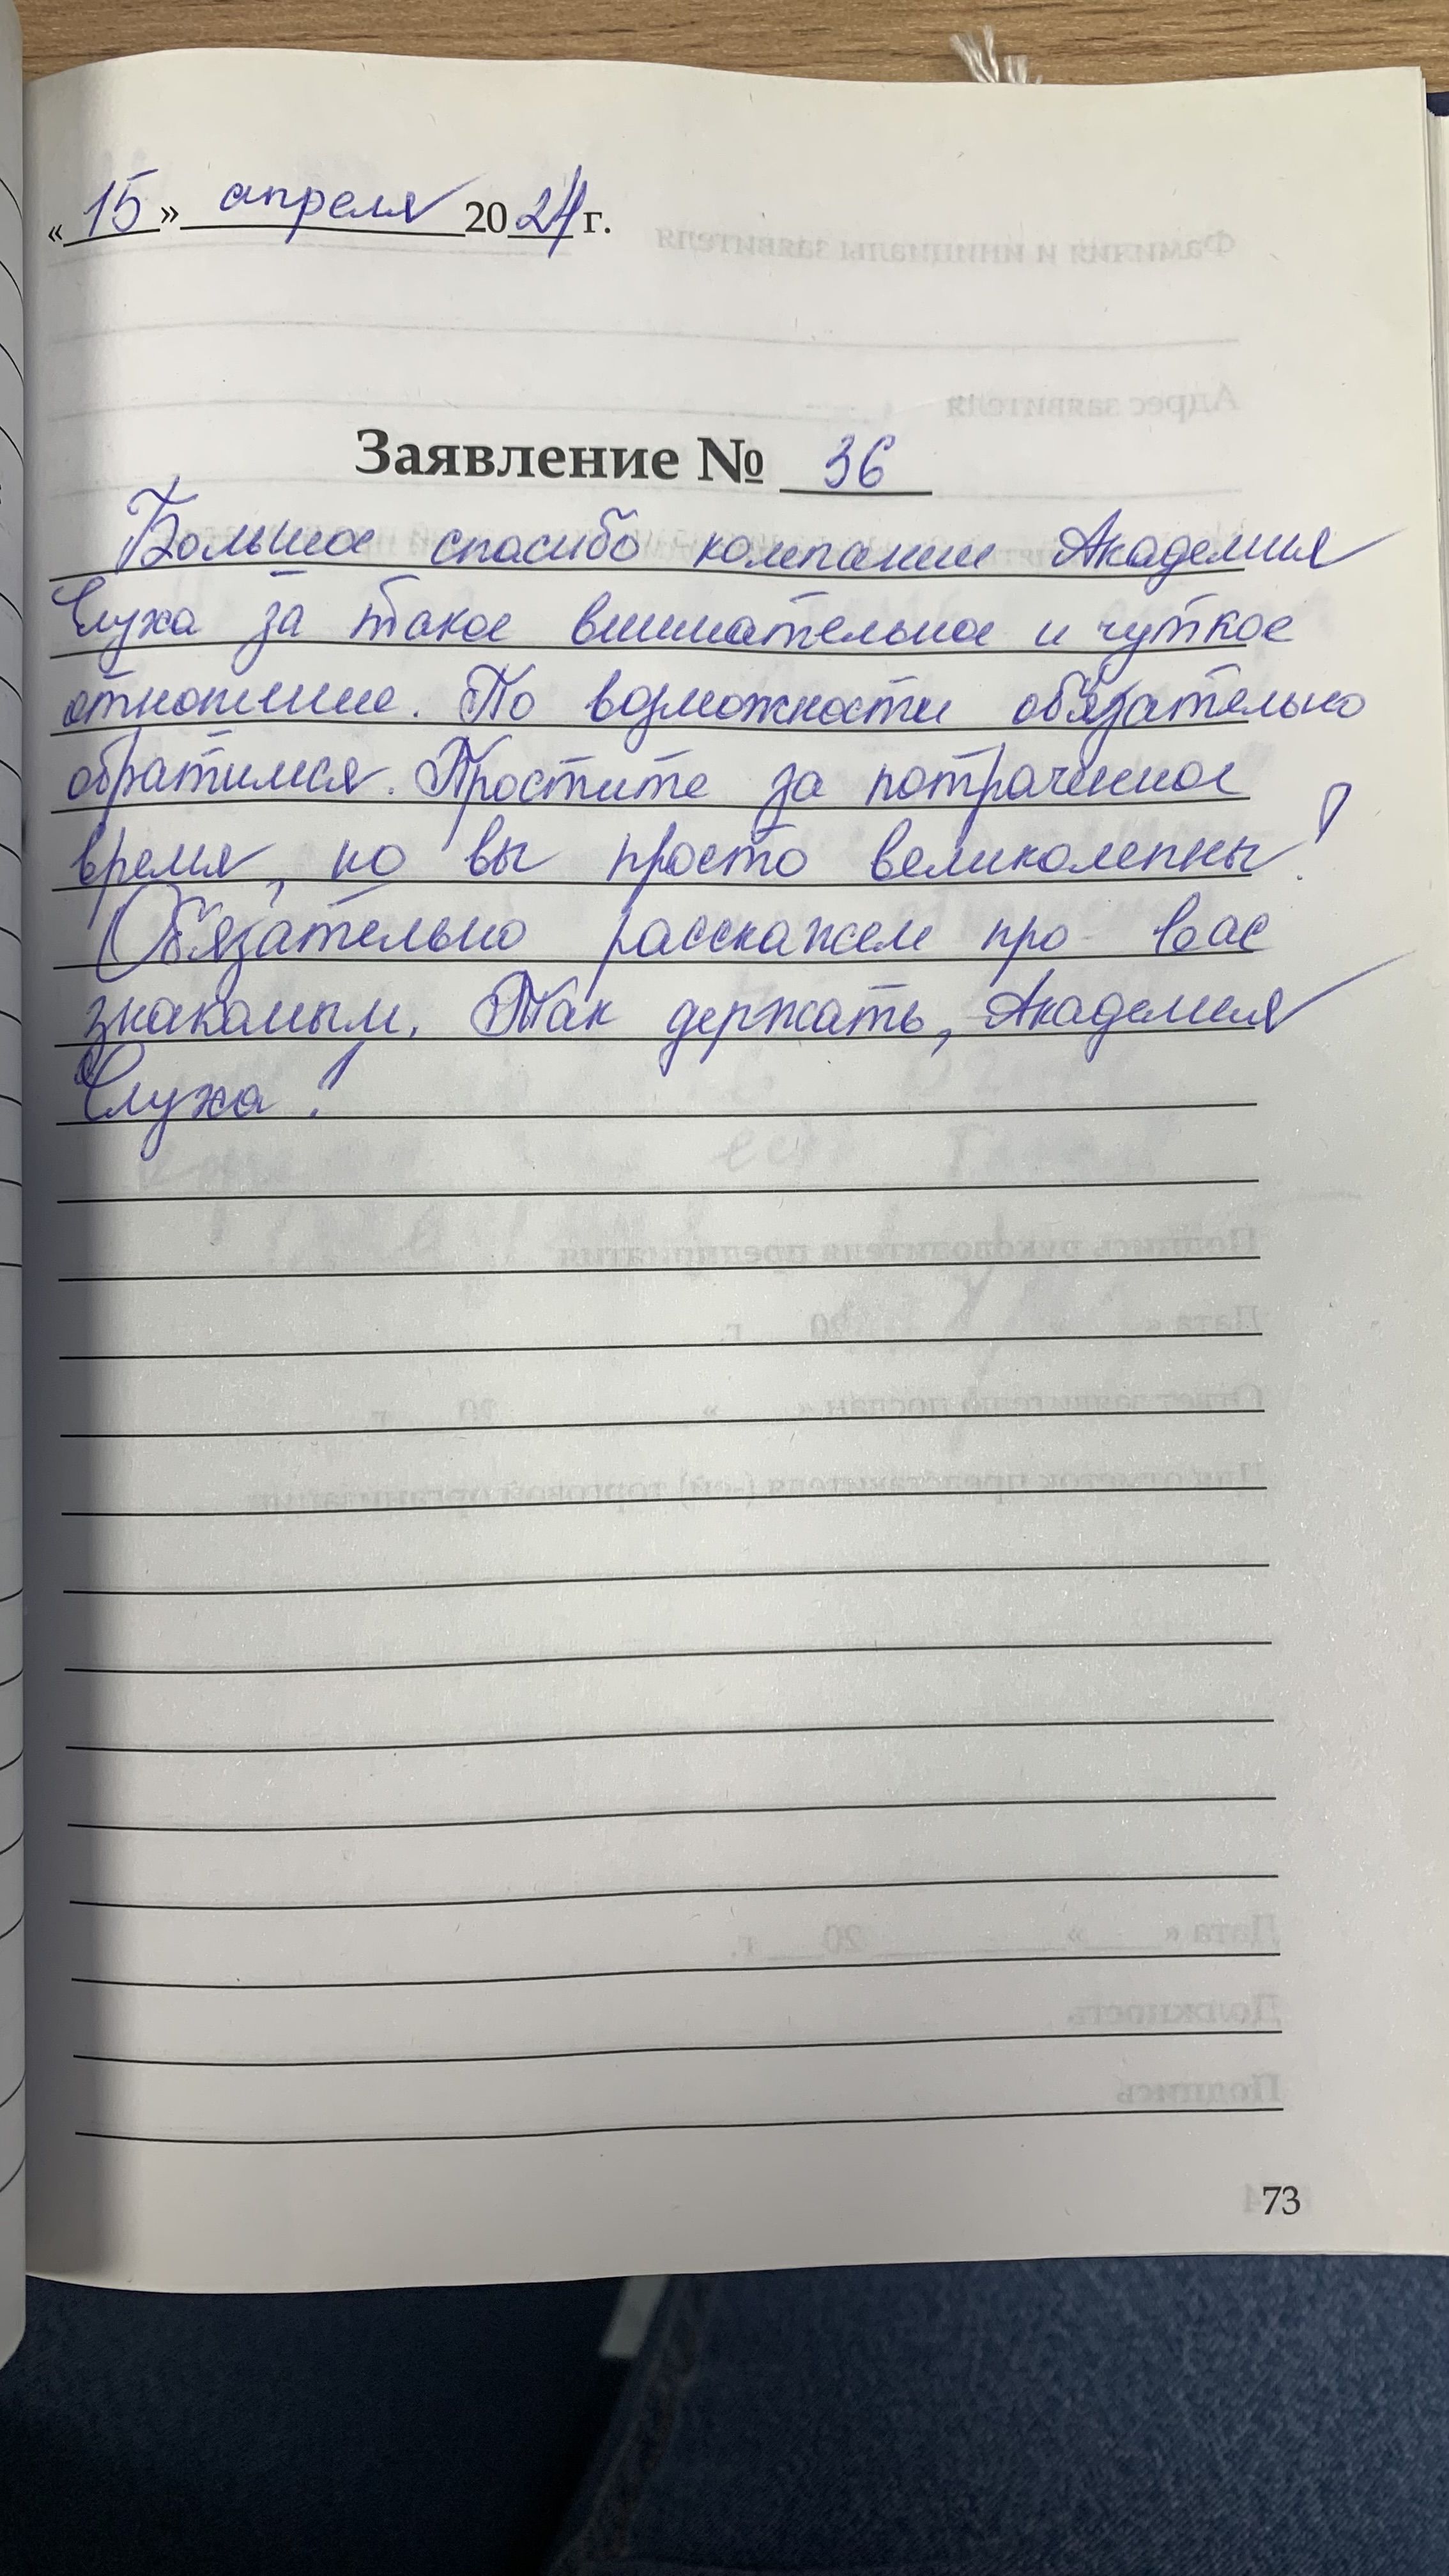 «15» апреля 2024 г.
Заявление № 36
Большое спасибо компании Академия
Слуха за такое внимательное и чуткое
отношение. По возможности обязательно
обратимся. Простите за потраченное
время, но вы просто великолепны!
Обязательно расскажем про вас
знакомым. Так держать, Академия
Слуха!
73